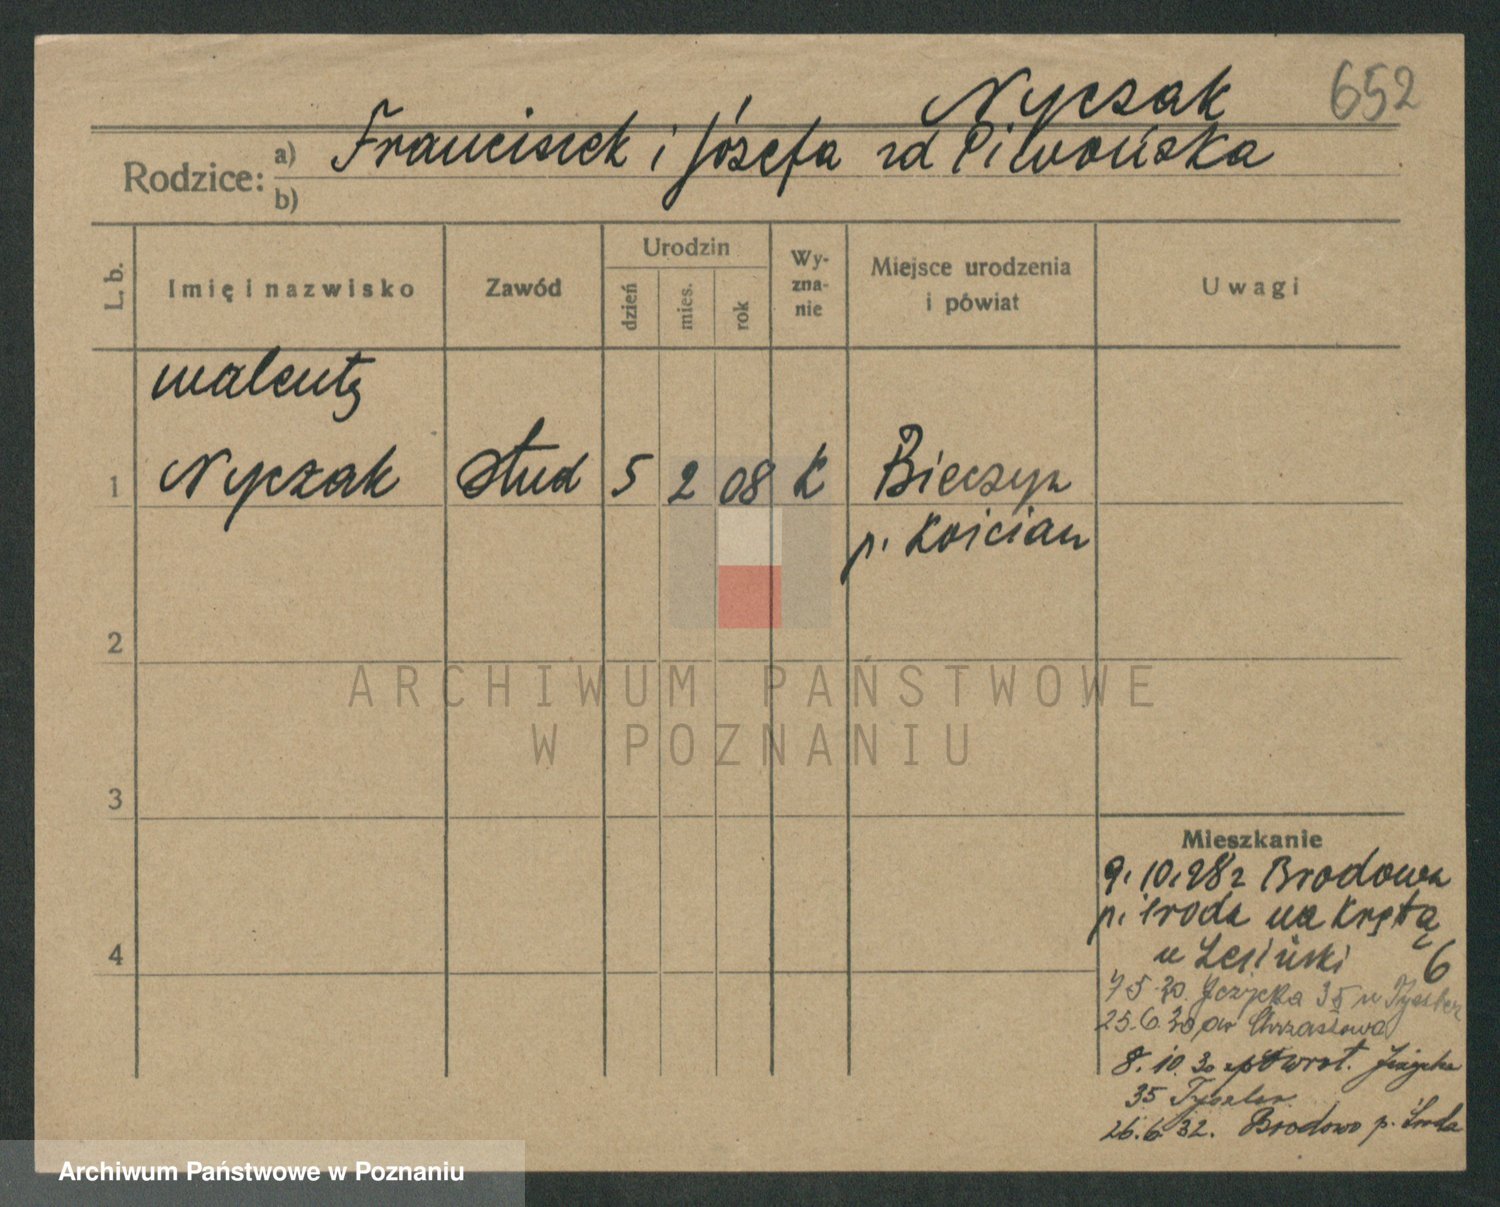 Nyczak 652
Rodzice: a) Franciszek i Józefa zd Piwońska
b)
L. b. Imię i nazwisko Zawód Urodzin dzień mies. rok Wy-zna-nie Miejsce urodzenia i powiat Uwagi
Walenty
1 Nyczak stud 5 2 08 k Bieczyn
p. Kościan
2
ARCHIWUM PAŃSTWOWE
W POZNANIU
3
Mieszkanie
9.10.28 z Brodowa
p. Środa na Krętą
4 u Lesiński 6
7 5.30. Jeżycka 35 u
25.6.30 do Chrzastowa
8.10.30 powrot. Jeżycka
35
26.6.32. Brodowo p. Środa
Archiwum Państwowe w Poznaniu